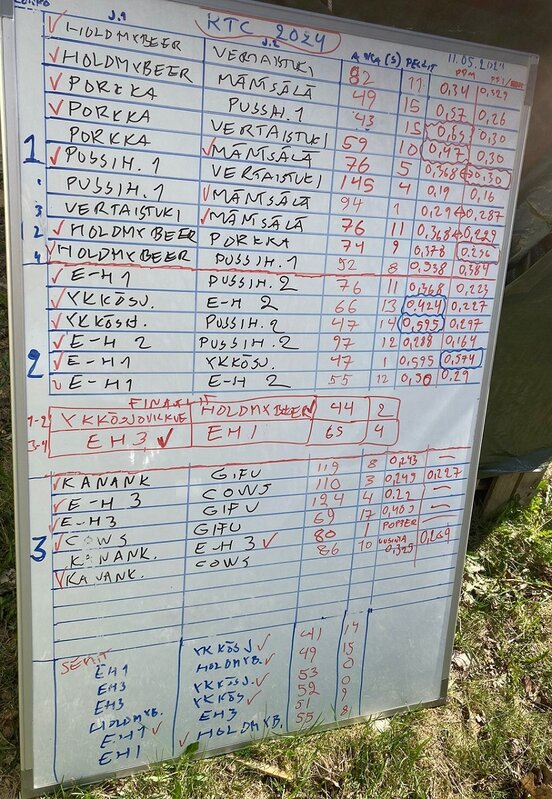 J.1 KTC 2024 J.2 11.05.2024
HOLDMYBEER VERTAISTUKI 82 11 0,34 0,329
HOLDMYBEER MÄNTSÄLÄ 49 15 0,57 0,26
PORKKA PUSSIH.1 43 15 0,65 0,30
PORKKA VERTAISTUKI 59 10 0,47 0,30
PORKKA MÄNTSÄLÄ 76 5 0,368 0,30
1 PUSSIH.1 VERTAISTUKI 145 4 0,19 0,16
PUSSIH.1 MÄNTSÄLÄ 94 1 0,29 0,287
3 VERTAISTUKI MÄNTSÄLÄ 76 11 0,368 0,229
2 HOLDMYBEER PORKKA 74 9 0,378 0,256
4 HOLDMYBEER PUSSIH.1 52 8 0,538 0,384
E-H1 PUSSIH.2 76 11 0,368 0,223
YKKÖSJ. E-H 2 66 13 0,424 0,227
YKKÖSJ. PUSSIH.2 47 14 0,595 0,297
E-H 2 PUSSIH.2 97 12 0,288 0,164
2 E-H1 YKKÖSJ. 47 1 0,595 0,574
E-H1 E-H 2 55 12 0,50 0,29
FINAALIT
1-2 YKKÖSJOUKKUE HOLDMYBEER 44 2
3-4 EH3 EH1 65 4
KANANK GIFU 119 8 0,243 —
E-H 3 COWS 110 3 0,249 0,227
E-H3 GIFU 124 4 0,22 —
3 COWS GIFU 69 17 0,405 —
KANANK. E-H 3 80 1 0,269
KANANK. COWS 86 10 0,325
SEMIT
EH1 YKKÖSJ 41 14
EH3 HOLDMYB. 49 15
EH3 YKKÖSJ. 53 0
HOLDMYB. YKKÖS 52 0
EH1 EH3 51 9
EH1 HOLDMYB. 55 8